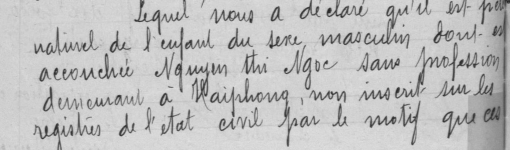 Lequel nous a déclaré qu'il est père
naturel de l'enfant du sexe masculin dont est
accouchée Nguyen thi Ngoc sans profession
demeurant à Haiphong, non inscrit sur les
registres de l'état civil par le motif que ces